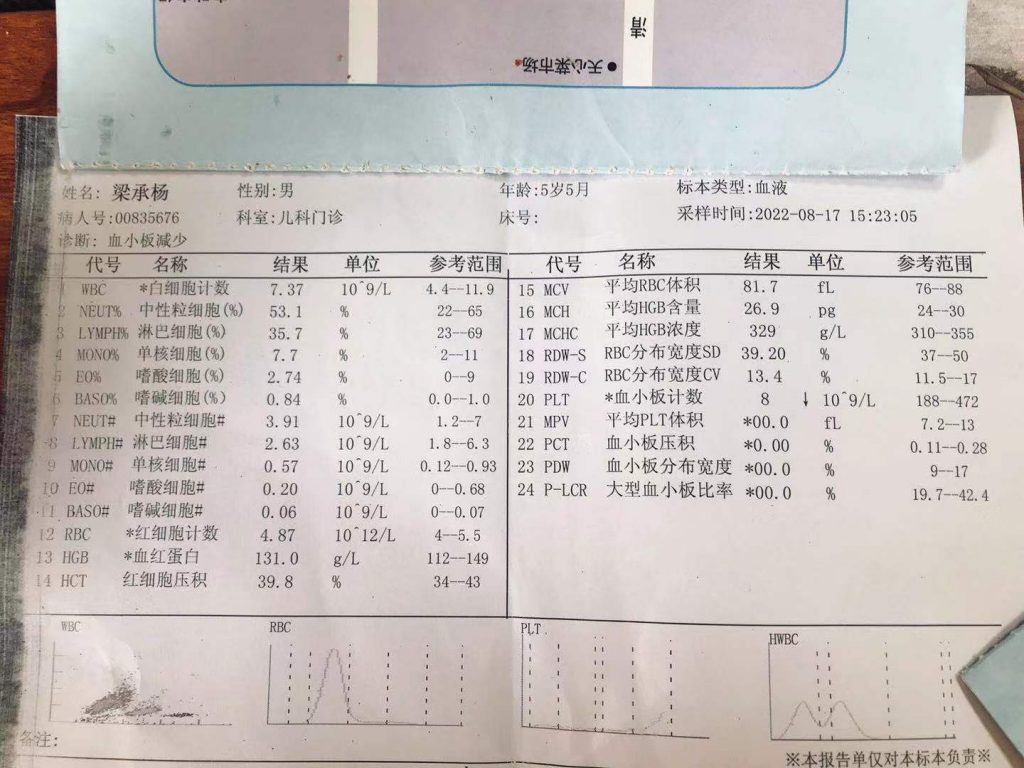 清
●天心菜市场
姓名: 梁承杨 性别:男 年龄:5岁5月 标本类型:血液
病人号:00835676 科室:儿科门诊 床号: 采样时间:2022-08-17 15:23:05
诊断: 血小板减少
代号 名称 结果 单位 参考范围 代号 名称 结果 单位 参考范围
1 WBC *白细胞计数 7.37 10^9/L 4.4--11.9
2 NEUT% 中性粒细胞(%) 53.1 % 22--65
3 LYMPH% 淋巴细胞(%) 35.7 % 23--69
4 MONO% 单核细胞(%) 7.7 % 2--11
5 EO% 嗜酸细胞(%) 2.74 % 0--9
6 BASO% 嗜碱细胞(%) 0.84 % 0.0--1.0
7 NEUT# 中性粒细胞# 3.91 10^9/L 1.2--7
8 LYMPH# 淋巴细胞# 2.63 10^9/L 1.8--6.3
9 MONO# 单核细胞# 0.57 10^9/L 0.12--0.93
10 EO# 嗜酸细胞# 0.20 10^9/L 0--0.68
11 BASO# 嗜碱细胞# 0.06 10^9/L 0--0.07
12 RBC *红细胞计数 4.87 10^12/L 4--5.5
13 HGB *血红蛋白 131.0 g/L 112--149
14 HCT 红细胞压积 39.8 % 34--43
15 MCV 平均RBC体积 81.7 fL 76--88
16 MCH 平均HGB含量 26.9 pg 24--30
17 MCHC 平均HGB浓度 329 g/L 310--355
18 RDW-S RBC分布宽度SD 39.20 % 37--50
19 RDW-C RBC分布宽度CV 13.4 % 11.5--17
20 PLT *血小板计数 8 ↓ 10^9/L 188--472
21 MPV 平均PLT体积 *00.0 fL 7.2--13
22 PCT 血小板压积 *0.00 % 0.11--0.28
23 PDW 血小板分布宽度 *00.0 % 9--17
24 P-LCR 大型血小板比率 *00.0 % 19.7--42.4
WBC RBC PLT HWBC
备注:
※本报告单仅对本标本负责※